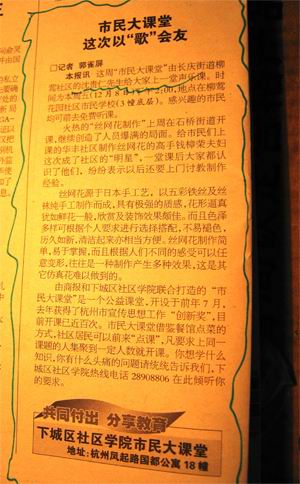 市民大课堂
这次以“歌”会友
□记者 郭雀屏
本报讯 这周“市民大课堂”由长庆街道柳
莺社区的沈贵仁先生给大家上一堂声乐课。时
间为本周五(12月8日)下午2:00,地点在柳莺
花园社区市民学校(3幢底层)。感兴趣的市民
均可前去免费听课。
火热的“丝网花制作”上周在石桥街道开
课,继续创造了人员爆满的局面。给市民们上
课的华丰社区制作丝网花的高手钱樟荣夫妇
这次成了社区的“明星”,一堂课后大家都认
识了他们,纷纷表示以后还要上门讨教制作
经验。
丝网花源于日本手工艺,以五彩铁丝及丝
袜纯手工制作而成,具有极强的质感,花形逼真
犹如鲜花一般,欣赏及装饰效果颇佳。而且色泽
多样可根据个人要求进行选择搭配,不易褪色,
历久如新,清洁起来亦相当方便。丝网花制作简
单,易于掌握,而且根据人们不同的感受可以任
意变形,往往是一种制作产生多种效果,这是其
它仿真花难以做到的。
由商报和下城区社区学院联合打造的“市
民大课堂”是一个公益课堂,开设于前年7月,
去年获得了杭州市宣传思想工作“创新奖”,目
前开课已近百次。市民大课堂借鉴餐馆点菜的
方式,社区居民可以前来“点课”,凡要求上同一
课题的人集聚到一定人数就开课。你想学什么
知识,你有什么头痛的问题请统统告诉我们,下
城区社区学院热线电话 28908806 在此倾听你
的要求。
共同付出 分享教育
下城区社区学院市民大课堂
地址:杭州凤起路国都公寓18幢